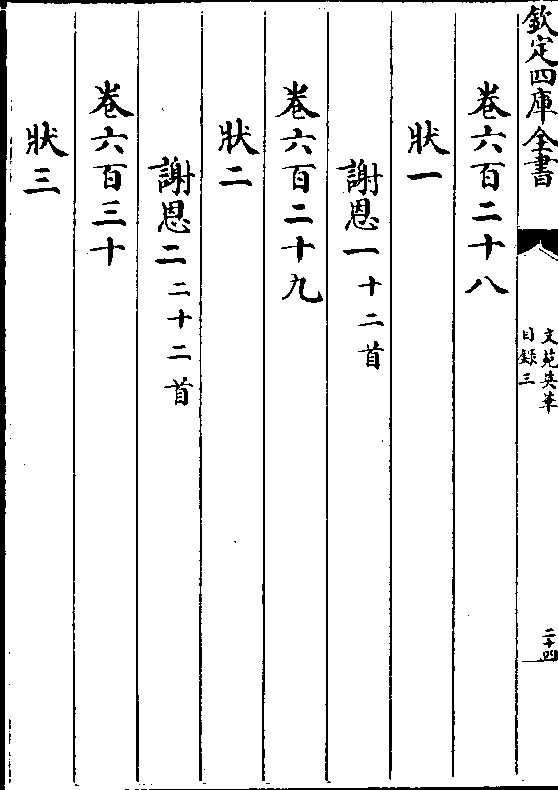 欽定四庫全書
文苑英華
目錄三
二十四
卷六百二十八
狀一
謝恩一十二首
卷六百二十九
狀二
謝恩二二十二首
卷六百三十
狀三